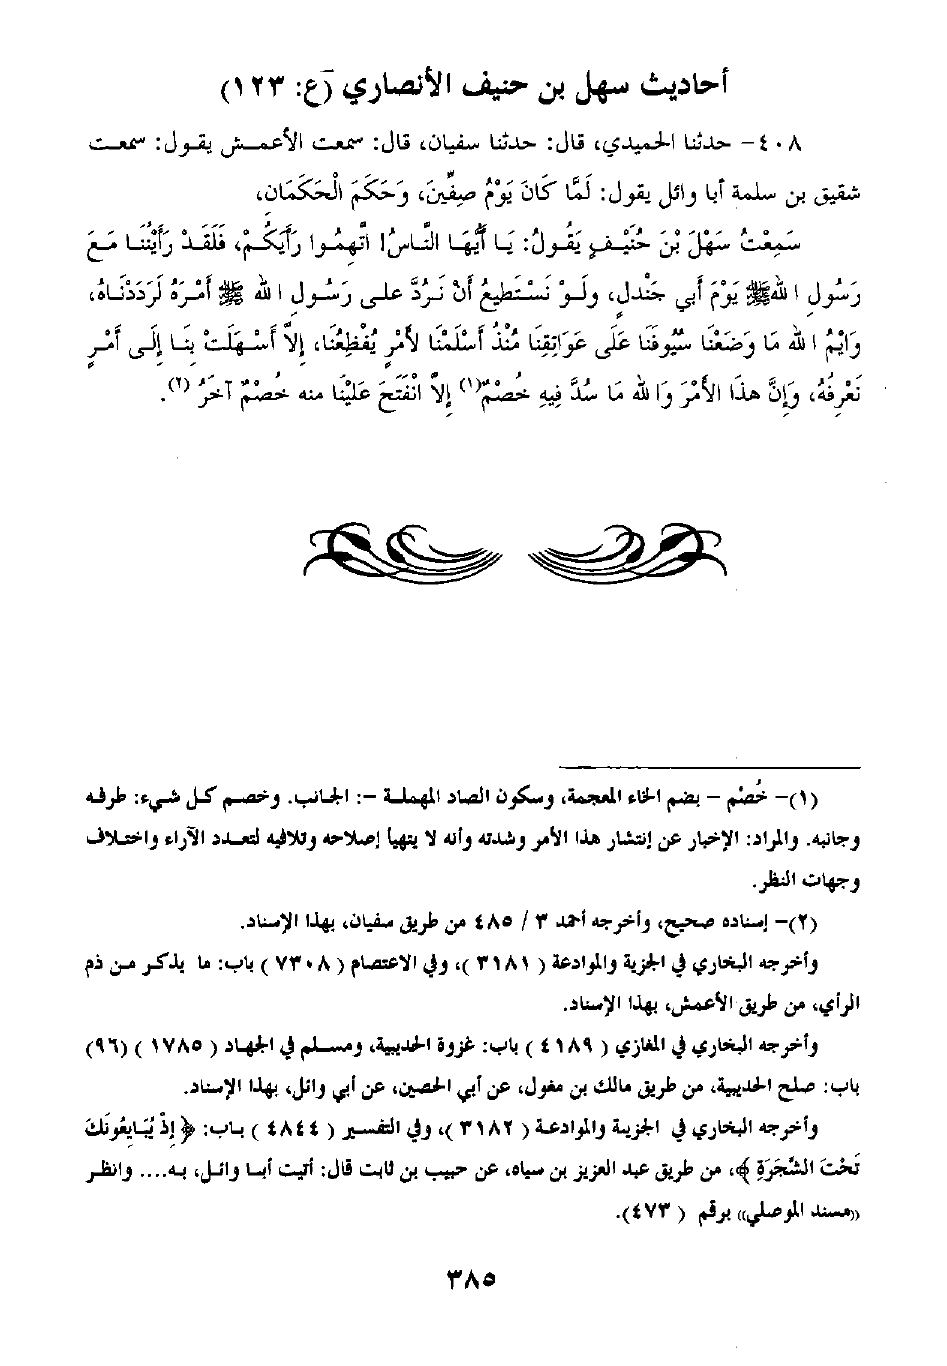 أحاديث سهل بن حنيف الأنصاري (ع: ١٢٣)
٤٠٨- حدثنا الحميدي، قال: حدثنا سفيان، قال: سمعت الأعمـش يقـول: سمعـت
شقيق بن سلمة أبا وائل يقول: لَمَّا كَانَ يَوْمُ صِفِّينَ، وَحَكَمَ الْحَكَمَان،
سَمِعْتُ سَهْلَ بْنَ حُنَيْـفٍ يَقُولُ: يَـا أَيُّهَـا النَّـاسُ! اتَّهِمُـوا رَأْيَكُـمْ، فَلَقَـدْ رَأَيْتُنَـا مَـعَ
رَسُولِ اللهِ ﷺ يَوْمَ أَبِي جَنْدلٍ، ولَـوْ نَسْـتَطِيعُ أَنْ نَـرُدَّ علـى رَسُـولِ اللهِ ﷺ أَمْـرَهُ لَرَدَدْنَـاهُ،
وَايْمُ اللهِ مَا وَضَعْنَا سُيُوفَنَا عَلَى عَوَاتِقِنَا مُنْذُ أَسْلَمْنَا لأَمْرٍ يُفْظِعُنَا، إِلاَّ أَسْـهَلَتْ بِنَـا إِلَـى أَمْـرٍ
نَعْرِفُهُ، وَإِنَّ هذَا الأَمْرَ وَاللهِ مَا سُدَّ فِيهِ خُصْمٌ(١) إِلاَّ انْفَتَحَ عَلَيْنَا منه خُصْمٌ آخَرُ (٢).
(١)- خُصْم - بضم الخاء المعجمة، وسكون الصاد المهملـة -: الجـانب. وخصـم كـل شـيء: طرفـه
وجانبه. والمراد: الإخبار عن إنتشار هذا الأمر وشدته وأنه لا يتهيأ إصلاحه وتلافيه لتعـدد الآراء واختـلاف
وجهات النظر.
(٢)- إسناده صحيح، وأخرجه أحمد ٣ / ٤٨٥ من طريق سفيان، بهذا الإسناد.
وأخرجه البخاري في الجزية والموادعة ( ٣١٨١ )، وفي الاعتصام ( ٧٣٠٨ ) باب: ما يذكـر مـن ذم
الرأي، من طريق الأعمش، بهذا الإسناد.
وأخرجه البخاري في المغازي ( ٤١٨٩ ) باب: غزوة الحديبية، ومسـلم في الجهـاد ( ١٧٨٥ ) (٩٦)
باب: صلح الحديبية، من طريق مالك بن مغول، عن أبي الحصين، عن أبي وائل، بهذا الإسناد.
وأخرجه البخاري في الجزيـة والموادعـة ( ٣١٨٢ )، وفي التفسـير ( ٤٨٤٤ ) بـاب: ﴿ إِذْ يُبَـايِعُونَكَ
تَحْتَ الشَّجَرَةِ ﴾، من طريق عبد العزيز بن سياه، عن حبيب بن ثابت قال: أتيت أبـا وائـل، بـه.... وانظـر
((مسند الموصلي)) برقم ( ٤٧٣).
٣٨٥